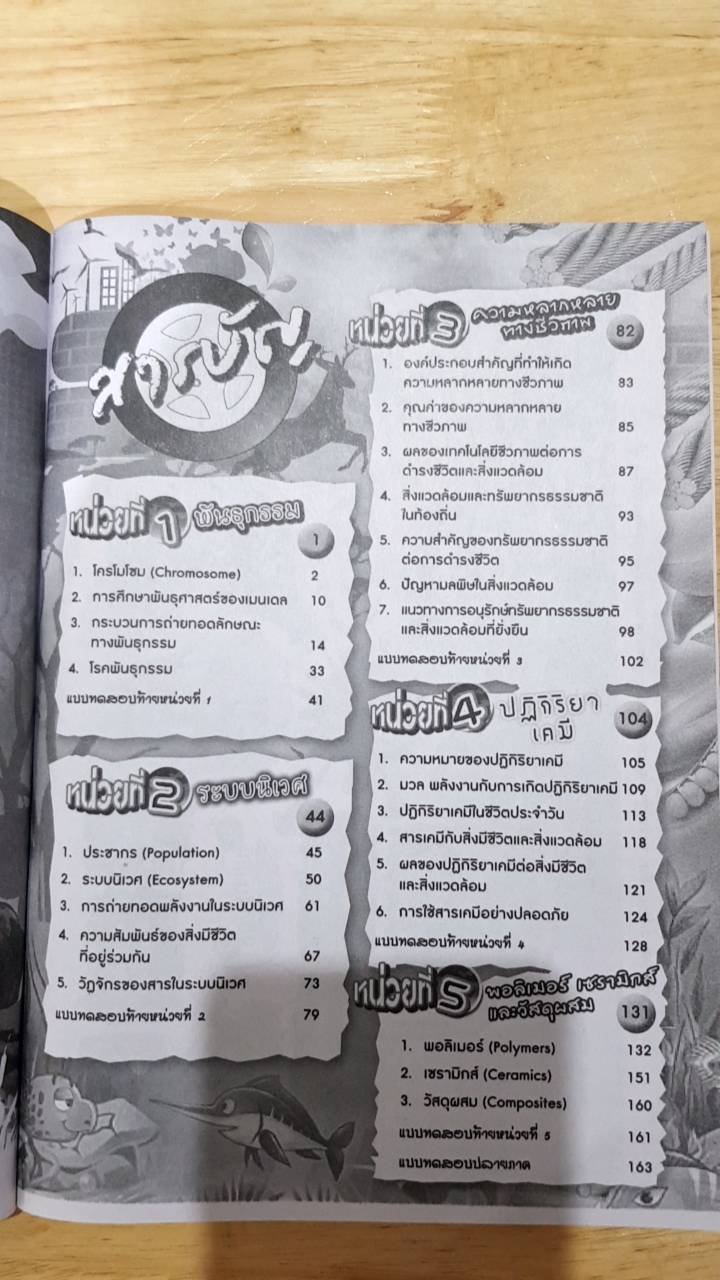 สารบัญ
หน่วยที่ 1 พันธุกรรม 1
1. โครโมโซม (Chromosome) 2
2. การศึกษาพันธุศาสตร์ของเมนเดล 10
3. กระบวนการถ่ายทอดลักษณะ
ทางพันธุกรรม 14
4. โรคพันธุกรรม 33
แบบทดสอบท้ายหน่วยที่ 1 41
หน่วยที่ 2 ระบบนิเวศ 44
1. ประชากร (Population) 45
2. ระบบนิเวศ (Ecosystem) 50
3. การถ่ายทอดพลังงานในระบบนิเวศ 61
4. ความสัมพันธ์ของสิ่งมีชีวิต
ที่อยู่ร่วมกัน 67
5. วัฏจักรของสารในระบบนิเวศ 73
แบบทดสอบท้ายหน่วยที่ 2 79
หน่วยที่ 3 ความหลากหลาย
ทางชีวภาพ 82
1. องค์ประกอบสำคัญที่ทำให้เกิด
ความหลากหลายทางชีวภาพ 83
2. คุณค่าของความหลากหลาย
ทางชีวภาพ 85
3. ผลของเทคโนโลยีชีวภาพต่อการ
ดำรงชีวิตและสิ่งแวดล้อม 87
4. สิ่งแวดล้อมและทรัพยากรธรรมชาติ
ในท้องถิ่น 93
5. ความสำคัญของทรัพยากรธรรมชาติ
ต่อการดำรงชีวิต 95
6. ปัญหามลพิษในสิ่งแวดล้อม 97
7. แนวทางการอนุรักษ์ทรัพยากรธรรมชาติ
และสิ่งแวดล้อมที่ยั่งยืน 98
แบบทดสอบท้ายหน่วยที่ 3 102
หน่วยที่ 4 ปฏิกิริยา
เคมี 104
1. ความหมายของปฏิกิริยาเคมี 105
2. มวล พลังงานกับการเกิดปฏิกิริยาเคมี 109
3. ปฏิกิริยาเคมีในชีวิตประจำวัน 113
4. สารเคมีกับสิ่งมีชีวิตและสิ่งแวดล้อม 118
5. ผลของปฏิกิริยาเคมีต่อสิ่งมีชีวิต
และสิ่งแวดล้อม 121
6. การใช้สารเคมีอย่างปลอดภัย 124
แบบทดสอบท้ายหน่วยที่ 4 128
หน่วยที่ 5 พอลิเมอร์ เซรามิกส์
และวัสดุผสม 131
1. พอลิเมอร์ (Polymers) 132
2. เซรามิกส์ (Ceramics) 151
3. วัสดุผสม (Composites) 160
แบบทดสอบท้ายหน่วยที่ 5 161
แบบทดสอบปลายภาค 163